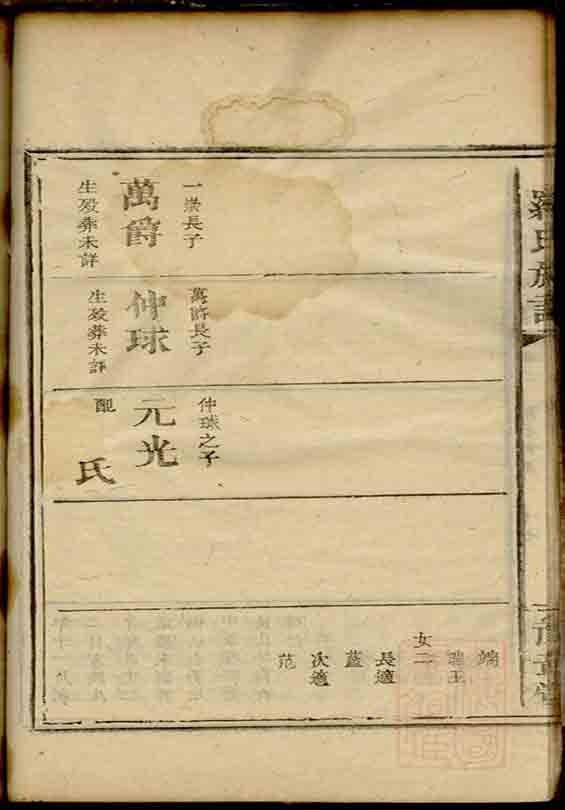 羅氏族譜
一崇長子
萬爵
生殁葬未詳
萬爵長子
仲球
生殁葬未詳
仲球之子
元光
配
氏
端
瑞玉
女二
長適
藍
次適
范